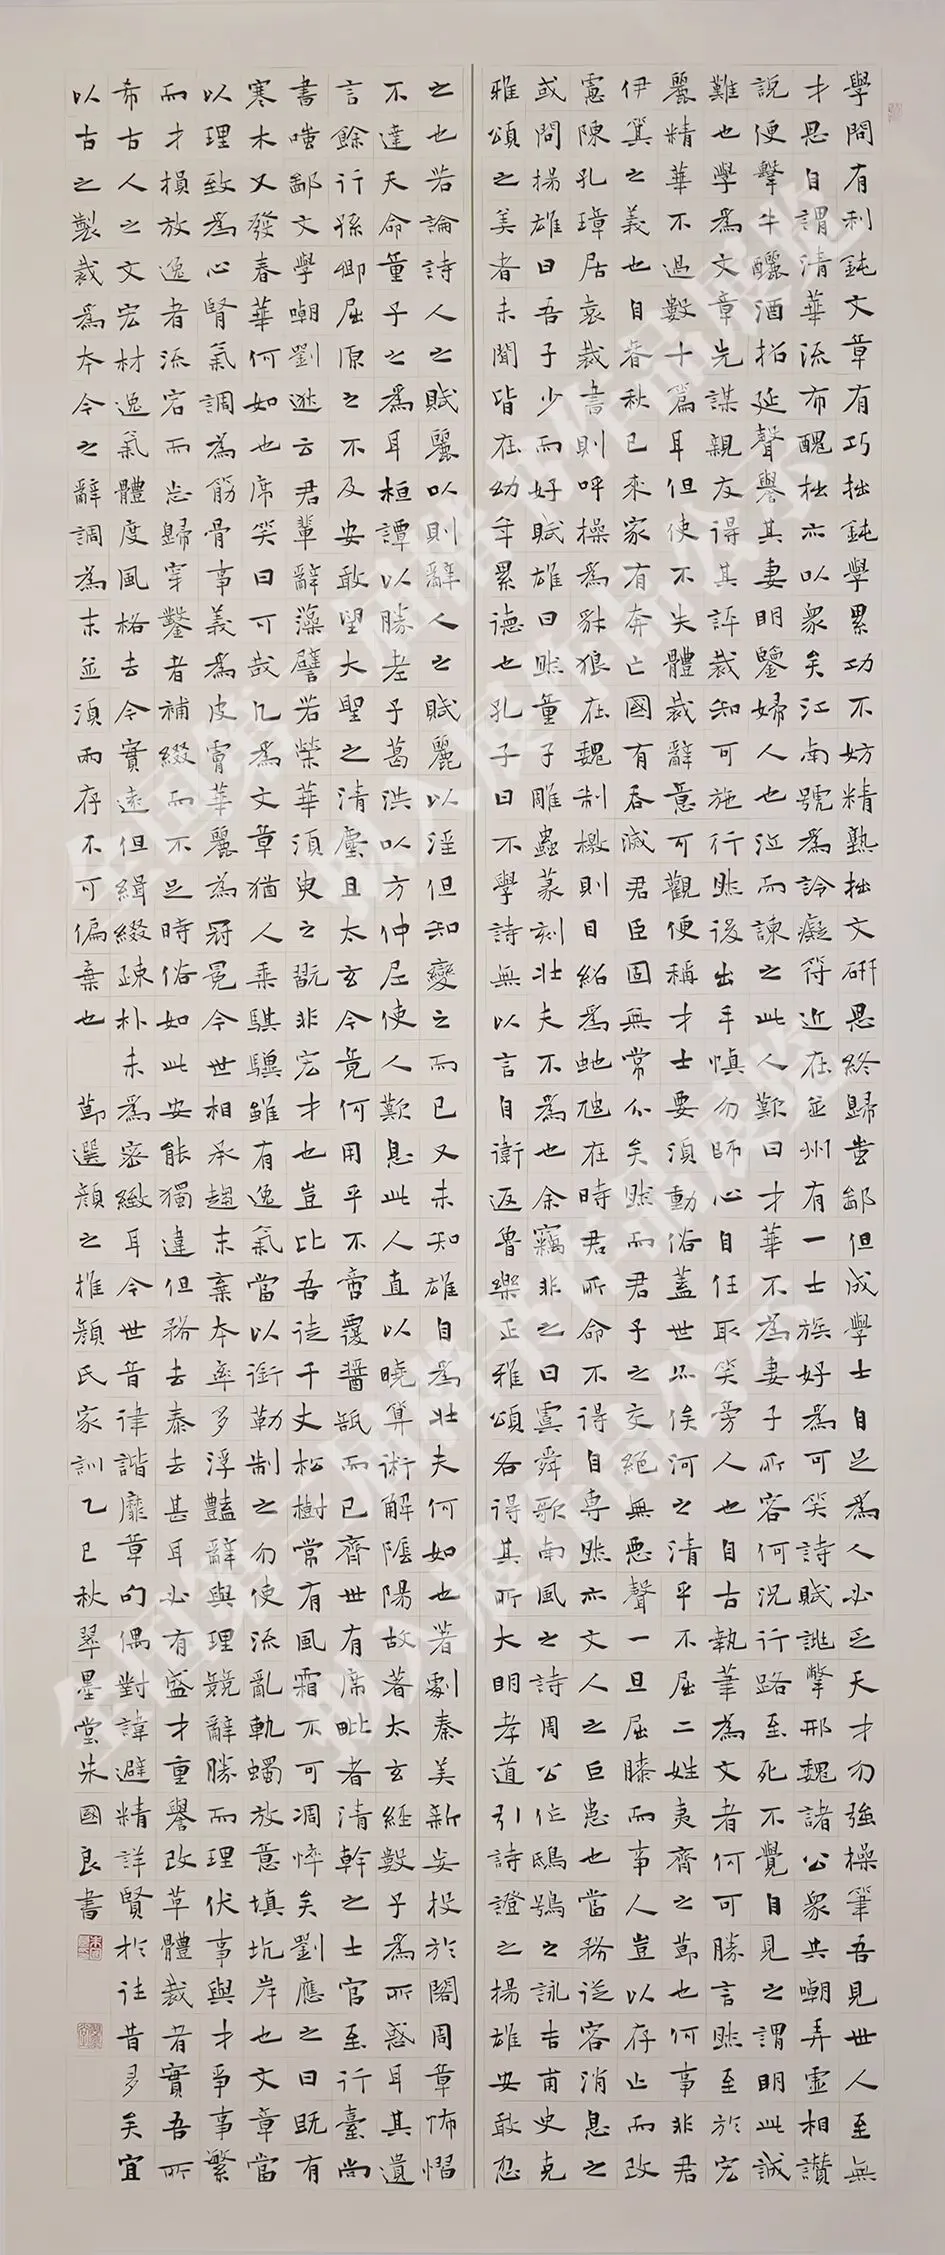 學問有利鈍文章有巧拙鈍學累功不妨精熟拙文研思終歸蚩鄙但成學士自足為人必乏天才勿強操筆吾見世人至無
才思自謂清華流布醜拙亦以眾矣江南號為詅癡符近在並州有一士族好為可笑詩賦誂撆邢魏諸公眾共嘲弄虛相讚
說便擊牛釃酒招延聲譽其妻明鑒婦人也泣而諫之此人歎曰才華不為妻子所容何況行路至死不覺自見之謂明此誠
難也學為文章先謀親友得其評裁知可施行然後出手慎勿師心自任取笑旁人也自古執筆為文者何可勝言然至於宏
麗精華不過數十篇耳但使不失體裁辭意可觀便稱才士要須動俗蓋世亦俟河之清乎不屈二姓夷齊之節也何事非君
伊箕之義也自春秋已來家有奔亡國有吞滅君臣固無常分矣然而君子之交絕無惡聲一旦屈膝而事人豈以存亡而改
慮陳孔璋居袁裁書則呼操為豺狼在魏制檄則目紹為虵虺在時君所命不得自專然亦文人之巨患也當務從容消息之
或問揚雄曰吾子少而好賦雄曰然童子雕蟲篆刻壯夫不為也余竊非之曰虞舜歌南風之詩周公作鴟鴞之詠吉甫史克
雅頌之美者未聞皆在幼年累德也孔子曰不學詩無以言自衛返魯樂正雅頌各得其所大明孝道引詩證之揚雄安敢忽
之也若論詩人之賦麗以則辭人之賦麗以淫但知變之而已又未知雄自為壯夫何如也著劇秦美新妄投於閣周章怖慴
不達天命童子之為耳桓譚以勝老子葛洪以方仲尼使人歎息此人直以曉算術解陰陽故著太玄經數子為所惑耳其遺
言餘行孫卿屈原之不及安敢望大聖之清塵且太玄今竟何用乎不啻覆醬瓿而已齊世有席毗者清幹之士官至行臺尚
書嗤鄙文學嘲劉逖云君輩辭藻譬若榮華須臾之翫非宏才也豈比吾徒千丈松樹常有風霜不可凋悴矣劉應之曰既有
寒木又發春華何如也席笑曰可哉凡為文章猶人乘騏驥雖有逸氣當以銜勒制之勿使流亂軌躅放意填坑岸也文章當
以理致為心腎氣調為筋骨事義為皮膚華麗為冠冕今世相承趨末棄本率多浮豔辭與理競辭勝而理伏事與才爭事繁
而才損放逸者流宕而忘歸穿鑿者補綴而不足時俗如此安能獨違但務去泰去甚耳必有盛才重譽改革體裁者實吾所
希古人之文宏材逸氣體度風格去今實遠但緝綴疎朴未為密緻耳今世音律諧靡章句偶對諱避精詳賢於往昔多矣宜
以古之製裁為本今之辭調為末並須兩存不可偏棄也 節選顏之推顏氏家訓乙巳秋翠墨堂朱國良書